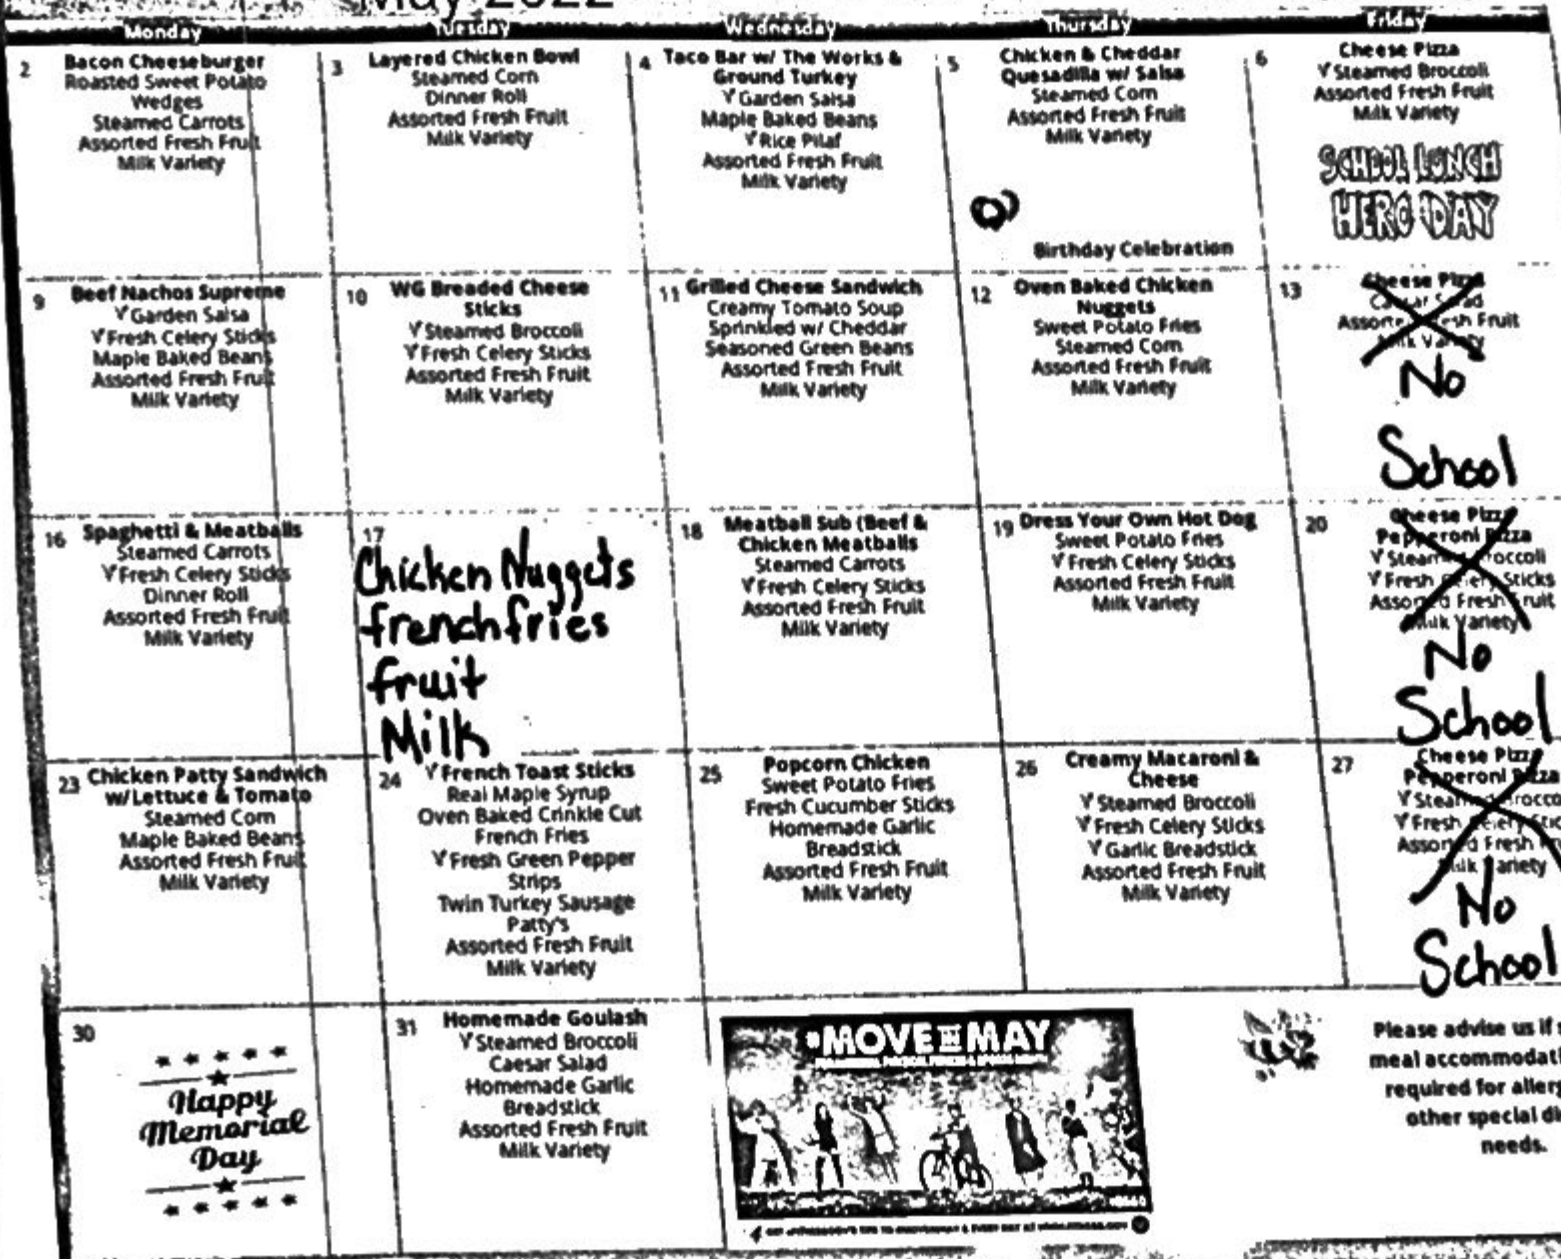 May 2022
Monday
Tuesday
Wednesday
Thursday
Friday
2
Bacon Cheeseburger
Roasted Sweet Potato
Wedges
Steamed Carrots
Assorted Fresh Fruit
Milk Variety
3
Layered Chicken Bowl
Steamed Corn
Dinner Roll
Assorted Fresh Fruit
Milk Variety
4
Taco Bar w/ The Works &
Ground Turkey
Garden Salsa
Maple Baked Beans
Rice Pilaf
Assorted Fresh Fruit
Milk Variety
5
Chicken & Cheddar
Quesadilla w/ Salsa
Steamed Corn
Assorted Fresh Fruit
Milk Variety
Birthday Celebration
6
Cheese Pizza
Steamed Broccoli
Assorted Fresh Fruit
Milk Variety
SCHOOL LUNCH
HERO DAY
9
Beef Nachos Supreme
Garden Salsa
Fresh Celery Sticks
Maple Baked Beans
Assorted Fresh Fruit
Milk Variety
10
WG Breaded Cheese
Sticks
Steamed Broccoli
Fresh Celery Sticks
Assorted Fresh Fruit
Milk Variety
11
Grilled Cheese Sandwich
Creamy Tomato Soup
Sprinkled w/ Cheddar
Seasoned Green Beans
Assorted Fresh Fruit
Milk Variety
12
Oven Baked Chicken
Nuggets
Sweet Potato Fries
Steamed Corn
Assorted Fresh Fruit
Milk Variety
13
Cheese Pizza
Caesar Salad
Assorted Fresh Fruit
Milk Variety
No
School
16
Spaghetti & Meatballs
Steamed Carrots
Fresh Celery Sticks
Dinner Roll
Assorted Fresh Fruit
Milk Variety
17
Chicken Nuggets
french fries
fruit
Milk
18
Meatball Sub (Beef &
Chicken Meatballs
Steamed Carrots
Fresh Celery Sticks
Assorted Fresh Fruit
Milk Variety
19
Dress Your Own Hot Dog
Sweet Potato Fries
Fresh Celery Sticks
Assorted Fresh Fruit
Milk Variety
20
Cheese Pizza
Pepperoni Pizza
Steamed Broccoli
Fresh Celery Sticks
Assorted Fresh Fruit
Milk Variety
No
School
23
Chicken Patty Sandwich
w/Lettuce & Tomato
Steamed Corn
Maple Baked Beans
Assorted Fresh Fruit
Milk Variety
24
French Toast Sticks
Real Maple Syrup
Oven Baked Crinkle Cut
French Fries
Fresh Green Pepper
Strips
Twin Turkey Sausage
Patty's
Assorted Fresh Fruit
Milk Variety
25
Popcorn Chicken
Sweet Potato Fries
Fresh Cucumber Sticks
Homemade Garlic
Breadstick
Assorted Fresh Fruit
Milk Variety
26
Creamy Macaroni &
Cheese
Steamed Broccoli
Fresh Celery Sticks
Garlic Breadstick
Assorted Fresh Fruit
Milk Variety
27
Cheese Pizza
Pepperoni Pizza
Steamed Brocco
Fresh Celery Stic
Assorted Fresh
Milk Variety
No
School
30
Happy
Memorial
Day
31
Homemade Goulash
Steamed Broccoli
Caesar Salad
Homemade Garlic
Breadstick
Assorted Fresh Fruit
Milk Variety
#MOVE IN MAY
Please advise us if
meal accommodati
required for aller
other special di
needs.